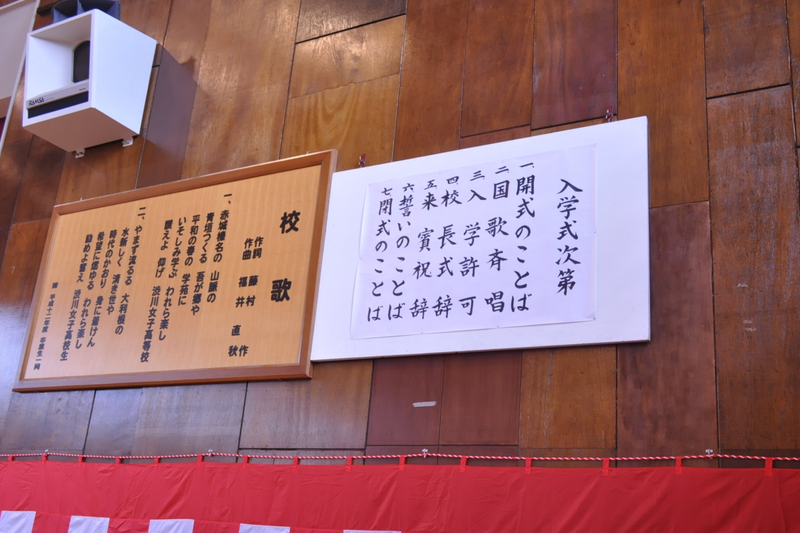 入学式次第
一、開式のことば
二、国歌斉唱
三、入学許可
四、校長式辞
五、来賓祝辞
六、誓いのことば
七、閉式のことば
校歌
作詞 藤村 作
作曲 福井 直秋
一、赤城榛名の 山脈の
青垣つくる 吾が郷や
平和の春の 学苑に
いそしみ学ぶ われら楽し
讃えよ 仰げ 渋川女子高等校
二、やまず流るる 大利根の
水新しく 清き世や
時代のかおり 身に着けん
希望に燃ゆる われら楽し
励めよ誓え 渋川女子高校生
平成十二年度 卒業生一同
RAMSA